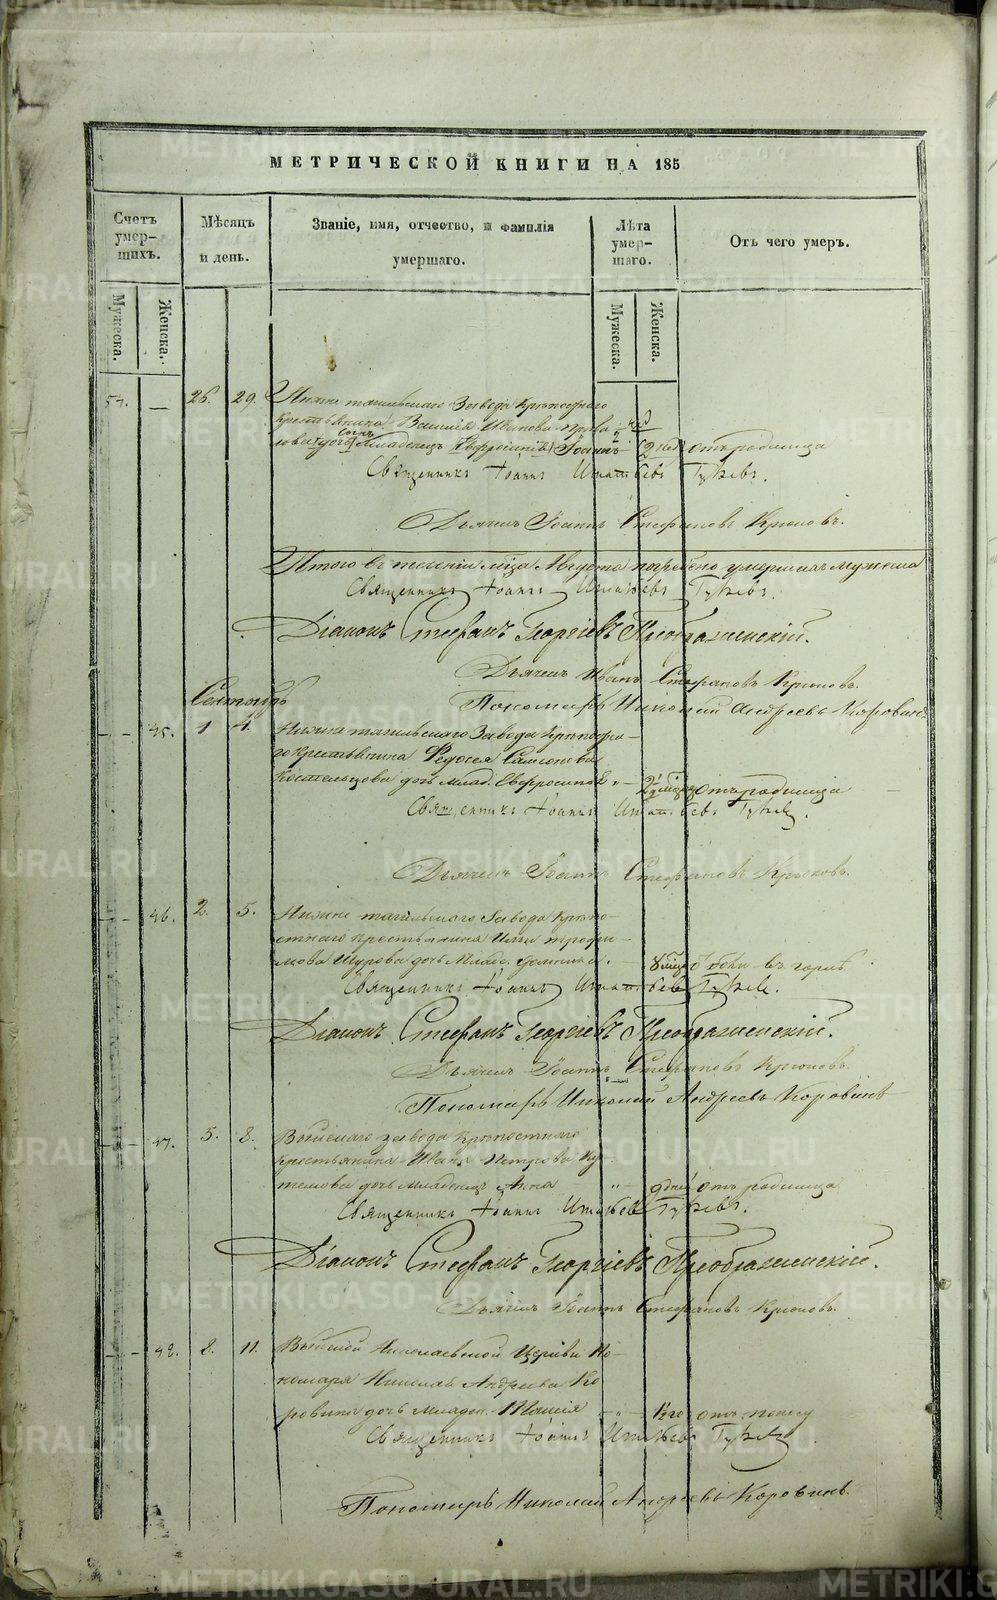 МЕТРИЧЕСКОЙ КНИГИ НА 185
Счетъ умер-шихъ.
Мѣсяцъ и день.
Званіе, имя, отчество, и фамилія умершаго.
Лѣта умер-шаго.
Отъ чего умеръ.
Мужеска.
Женска.
Мужеска.
Женска.
54. — 26. 29. Нижне тагильскаго Завода Крѣпостнаго
крестьянина Василія Иванова
сынъ Младенецъ Іоаннъ 2 нед отъ родимца
Священникъ Іоаннъ Игнатьевъ
Дьячекъ Іоаннъ Стефановъ Крюковъ.
Итого въ теченіи мѣсца Августа погребено умершихъ мужеска
Священникъ Іоаннъ Игнатьевъ
Діаконъ Стефанъ Георгіевъ Преображенскій.
Дьячекъ Иванъ Стефановъ Крюковъ.
Пономарь Николай Андреевъ Коровинъ
Сентябрь
45. 1 4. Нижне тагильскаго Завода Крѣпостна-
го крестьянина Федосея Самсонова
дочь млад. Евфросинія отъ родимца
Священникъ Іоаннъ Игнатьевъ
Дьячекъ Іоаннъ Стефановъ Крюковъ.
46. 2. 5. Нижне тагильскаго Завода Крѣпо-
стнаго крестьянина Ильи трофи-
мова Щурова дочь Млад. 8 мѣс боли въ горлѣ
Священникъ Іоаннъ Игнатьевъ
Діаконъ Стефанъ Георгіевъ Преображенскій.
Дьячекъ Іоаннъ Стефановъ Крюковъ.
Пономарь Николай Андреевъ Коровинъ
47. 5. 8. Выйскаго завода Крѣпостнаго
крестьянина Ивана Петрова
дочь младенецъ Анна „ 9 дней отъ родимца
Священникъ Іоаннъ Игнатьевъ
Діаконъ Стефанъ Георгіевъ Преображенскій.
Дьячекъ Іоаннъ Стефановъ Крюковъ.
48. 8. 11. Выйской Николаевской Церкви по-
номаря Николая Андреева Ко
ровина дочь младен. Таисія „ отъ поносу
Священникъ Іоаннъ Игнатьевъ
Пономарь Николай Андреевъ Коровинъ.
METRIKI.GASO-URAL.RU